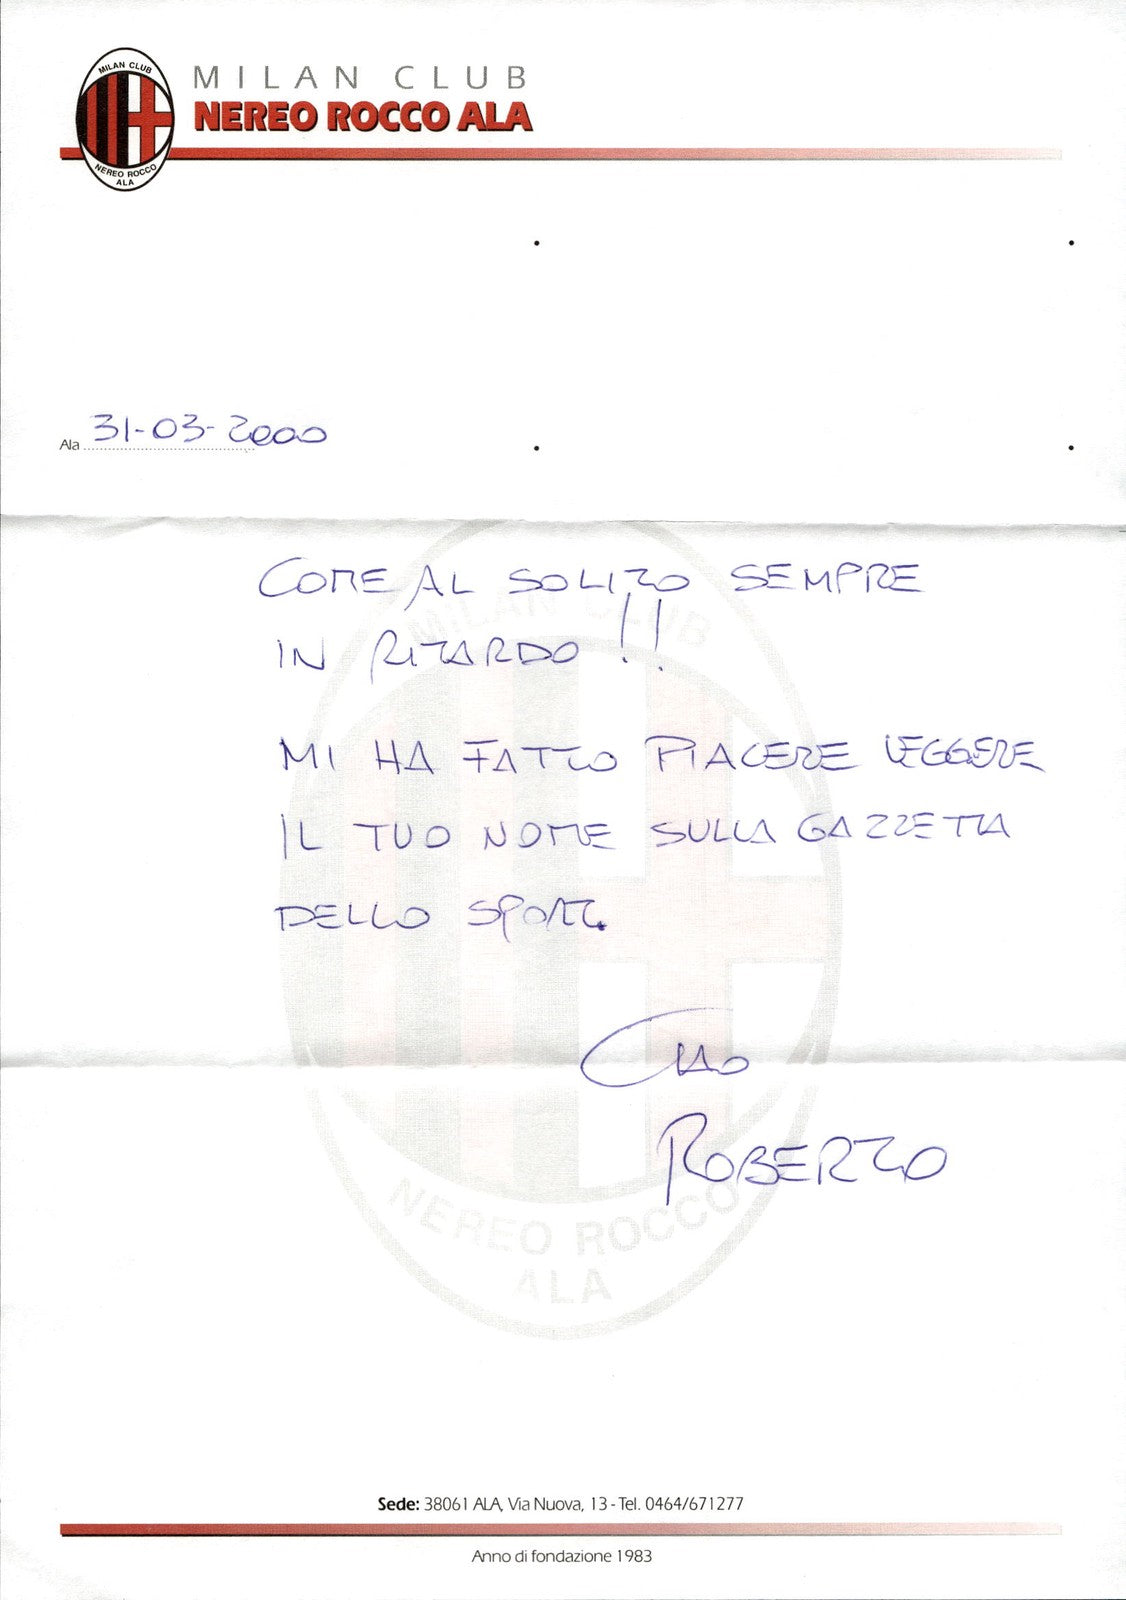 MILAN CLUB
NEREO ROCCO
ALA
MILAN CLUB
NEREO ROCCO ALA
Ala 31-03-2000
COME AL SOLITO SEMPRE
IN RITARDO !!
MI HA FATTO PIACERE LEGGERE
IL TUO NOME SULLA GAZZETTA
DELLO SPORT.
CIAO
ROBERTO
MILAN CLUB
NEREO ROCCO
ALA
Sede: 38061 ALA, Via Nuova, 13 - Tel. 0464/671277
Anno di fondazione 1983